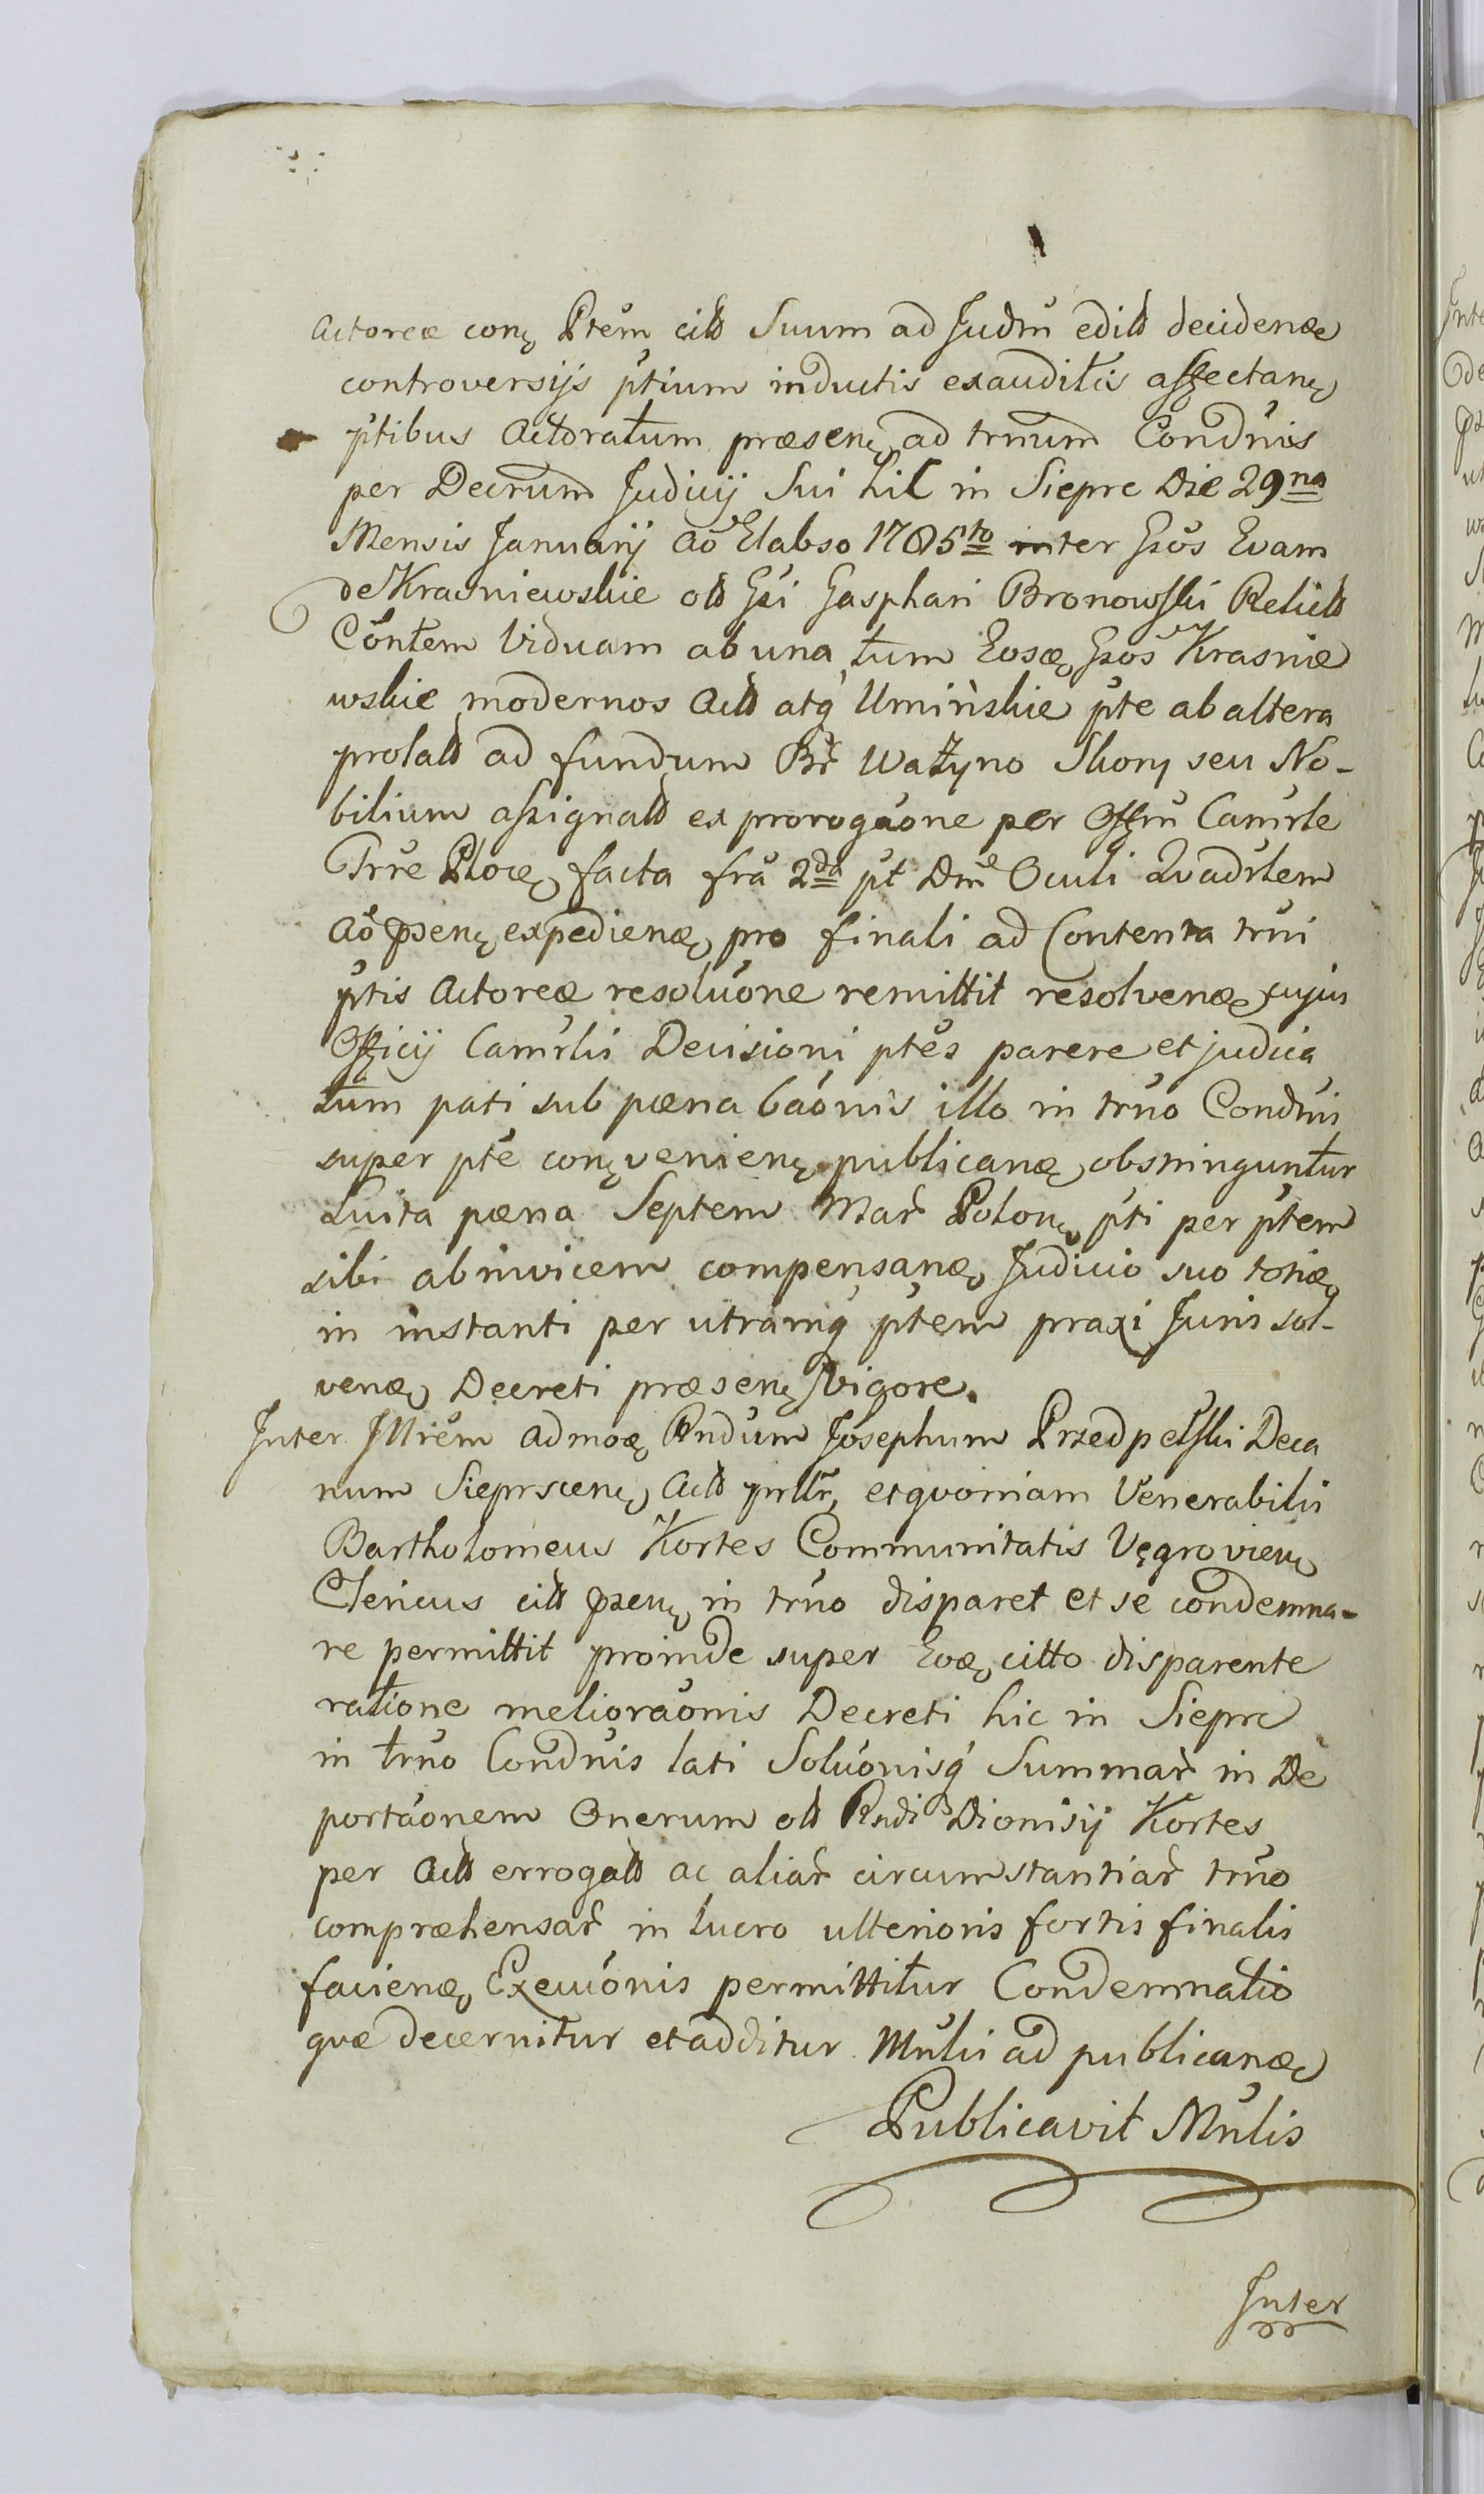 Actoreæ conų Ptĕm citt Suum ad Judm̃ editt decidenæ
controversijs p̆tium inductis exauditis affectanų
p̆tibus Actoratum præsenų ad trmum Condn̆is
per Decrum Judicij Sui hic in Siepre Die 29na
Mensis Januarij Aŏ Elabso 1785to inter Gsŏs Evam
de Krasniewskie ott Gsi Gasphari Bronowski Relictt
Cŏntem Viduam ab una tum Eosæ Gsŏs Krasnie
wskie modernos Actt atq Uminskie p̆te ab altera
prolatt ad fundum Br̃ Ważyno Skory seu No-
bilium assignatt ex prorogăone per Offm̃ Camr̆le
Trrĕ Plocų facta fr̆a 2da p̆t Dmc̃ Oculi Qvadr̆lem
Aŏ psenų expedienæ pro finali ad Contenta trn̆i
p̆tis Actoreæ resolŭone remittit resolvenæ cujus
Officij Camr̆lis Decisioni ptĕs parere et judica
tum pati sub pæna băonis illo in trn̆o Condn̆is
super ptĕ conų venienų publicanæ obstringuntur
Luita pæna Septem Mar̃ Polonų p̆ti per p̆tem
sibi abinvicem compensanæ Judicio suo totiæ
in instanti per utramq p̆tem praxi Juris sol-
venæ Decreti præsenų vigore.
Inter Illrĕm admoæ Rndum Josephum Przedpelski Deca
num Sieprscenų Actt prllr̃ et qvoniam Venerabilis
Bartholomeus Kortes Communitatis Vęgrovienų
Clericus citt psenų in trn̆o disparet et se condemna-
re permittit proinde super Eoæ citto disparente
ratione meliorăonis Decreti hic in Siepre
in trn̆o Condn̆is lati Solŭonisq Summar̃ in De
portăonem Onerum ott Rndi Dionisij Kortes
per Actt errogatt ac aliar̃ circumstantiar̃ trn̆o
compræhensar̃ in lucro ulterioris fortis finalis
facienæ Execŭonis permittitur Condemnatio
qvæ decernitur et additur Mn̆lis ad publicanæ
Publicavit Mn̆lis
Inter